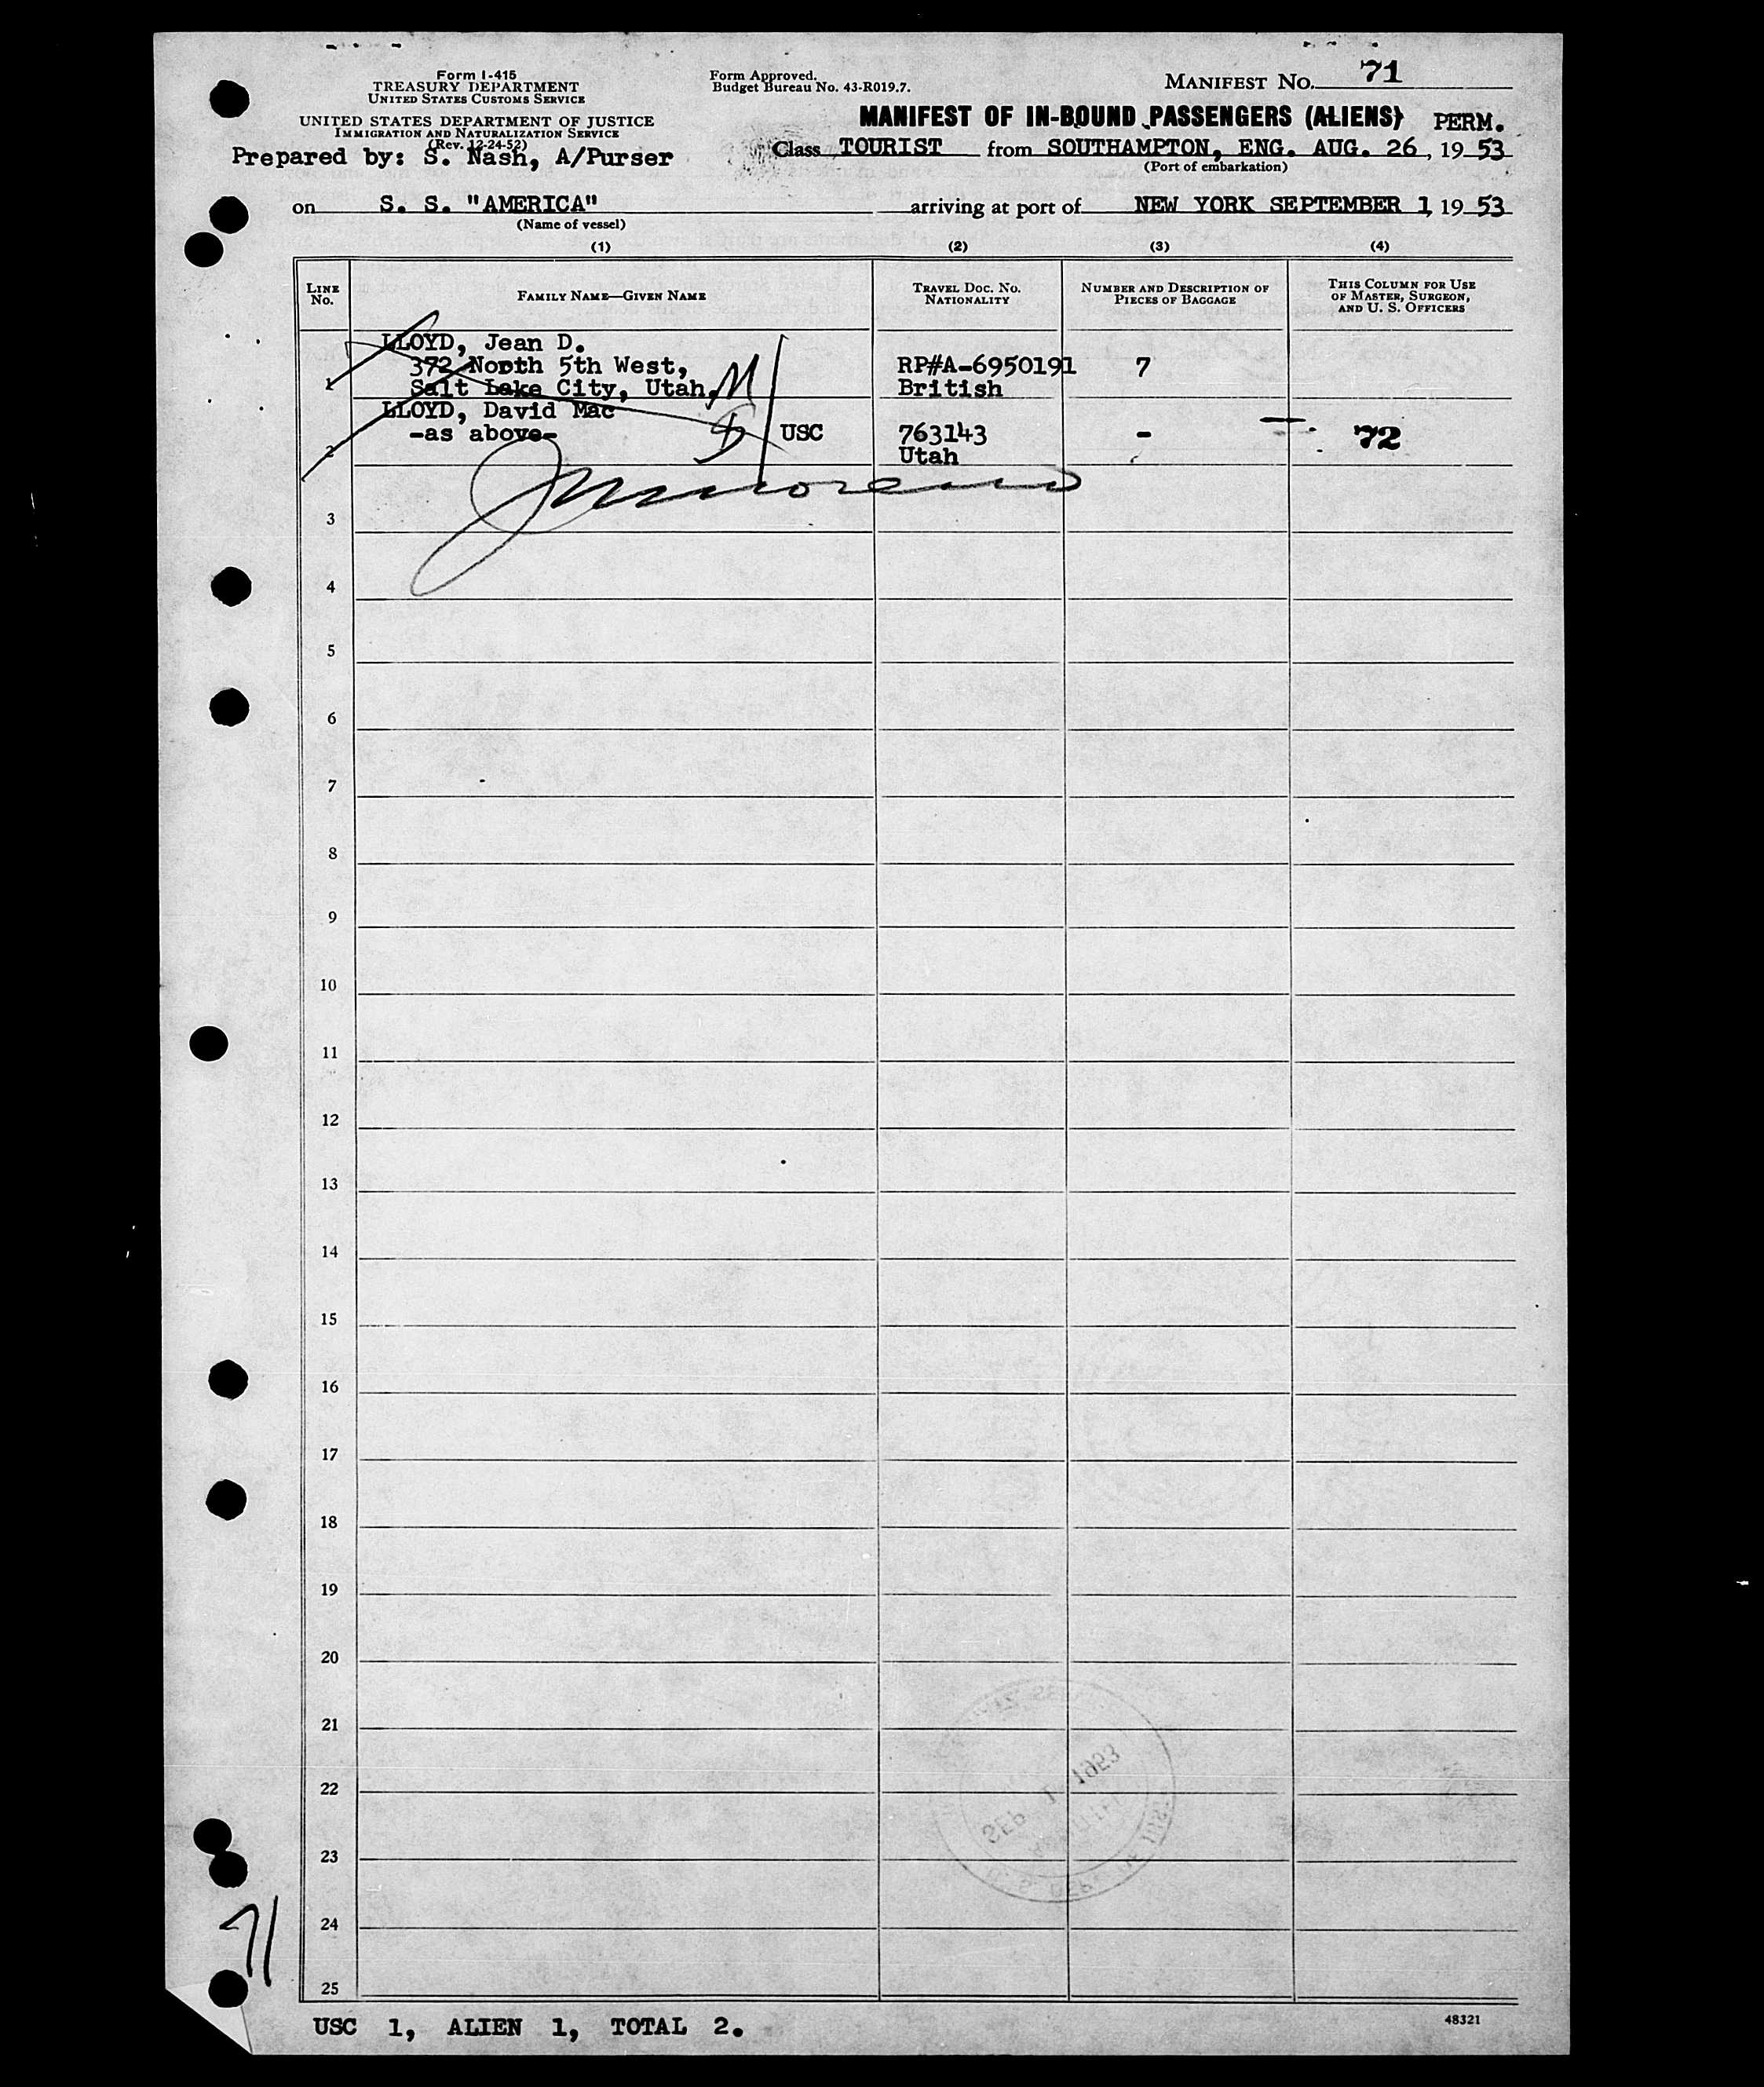 Form I-415
TREASURY DEPARTMENT
UNITED STATES CUSTOMS SERVICE
UNITED STATES DEPARTMENT OF JUSTICE
IMMIGRATION AND NATURALIZATION SERVICE
(Rev. 12-24-52)
Prepared by: S. Nash, A/Purser
Form Approved.
Budget Bureau No. 43-R019.7.
MANIFEST NO. 71
MANIFEST OF IN-BOUND PASSENGERS (ALIENS) PERM.
Class TOURIST from SOUTHAMPTON, ENG. AUG. 26, 19 53
(Port of embarkation)
on S. S. "AMERICA" arriving at port of NEW YORK SEPTEMBER 1, 19 53
(Name of vessel)
(1) (2) (3) (4)
LINE No. FAMILY NAME—GIVEN NAME TRAVEL DOC. NO. NATIONALITY NUMBER AND DESCRIPTION OF PIECES OF BAGGAGE THIS COLUMN FOR USE OF MASTER, SURGEON, AND U. S. OFFICERS
LLOYD, Jean D.
372 North 5th West, RP#A-6950191 7
1 Salt Lake City, Utah, M British
LLOYD, David Mac
-as above- USC 763143 - 72
2 Utah
3
4
5
6
7
8
9
10
11
12
13
14
15
16
17
18
19
20
21
22
SEP 1 1953
23
24
71
25
USC 1, ALIEN 1, TOTAL 2.
48321